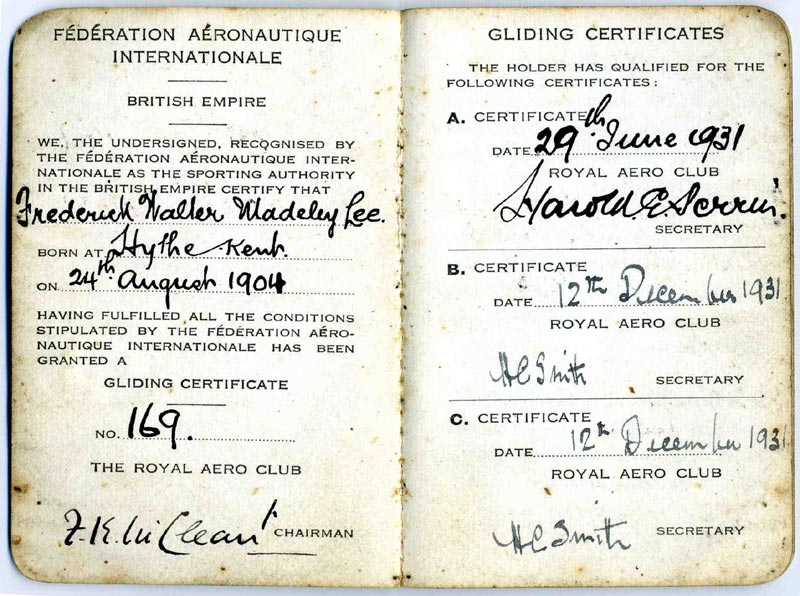 FÉDÉRATION AÉRONAUTIQUE
INTERNATIONALE
BRITISH EMPIRE
WE, THE UNDERSIGNED, RECOGNISED BY
THE FÉDÉRATION AÉRONAUTIQUE INTER-
NATIONALE AS THE SPORTING AUTHORITY
IN THE BRITISH EMPIRE CERTIFY THAT
Frederick Walter Madeley Lee.
BORN AT Hythe Kent.
ON 24th August 1904
HAVING FULFILLED ALL THE CONDITIONS
STIPULATED BY THE FÉDÉRATION AÉRO-
NAUTIQUE INTERNATIONALE HAS BEEN
GRANTED A
GLIDING CERTIFICATE
NO. 169.
THE ROYAL AERO CLUB
F.K. McClean CHAIRMAN
GLIDING CERTIFICATES
THE HOLDER HAS QUALIFIED FOR THE
FOLLOWING CERTIFICATES:
A. CERTIFICATE
DATE 29th June 1931
ROYAL AERO CLUB
Harold E. Perrin.
SECRETARY
B. CERTIFICATE
DATE 12th December 1931
ROYAL AERO CLUB
HC Smith SECRETARY
C. CERTIFICATE
DATE 12th December 1931
ROYAL AERO CLUB
HC Smith SECRETARY